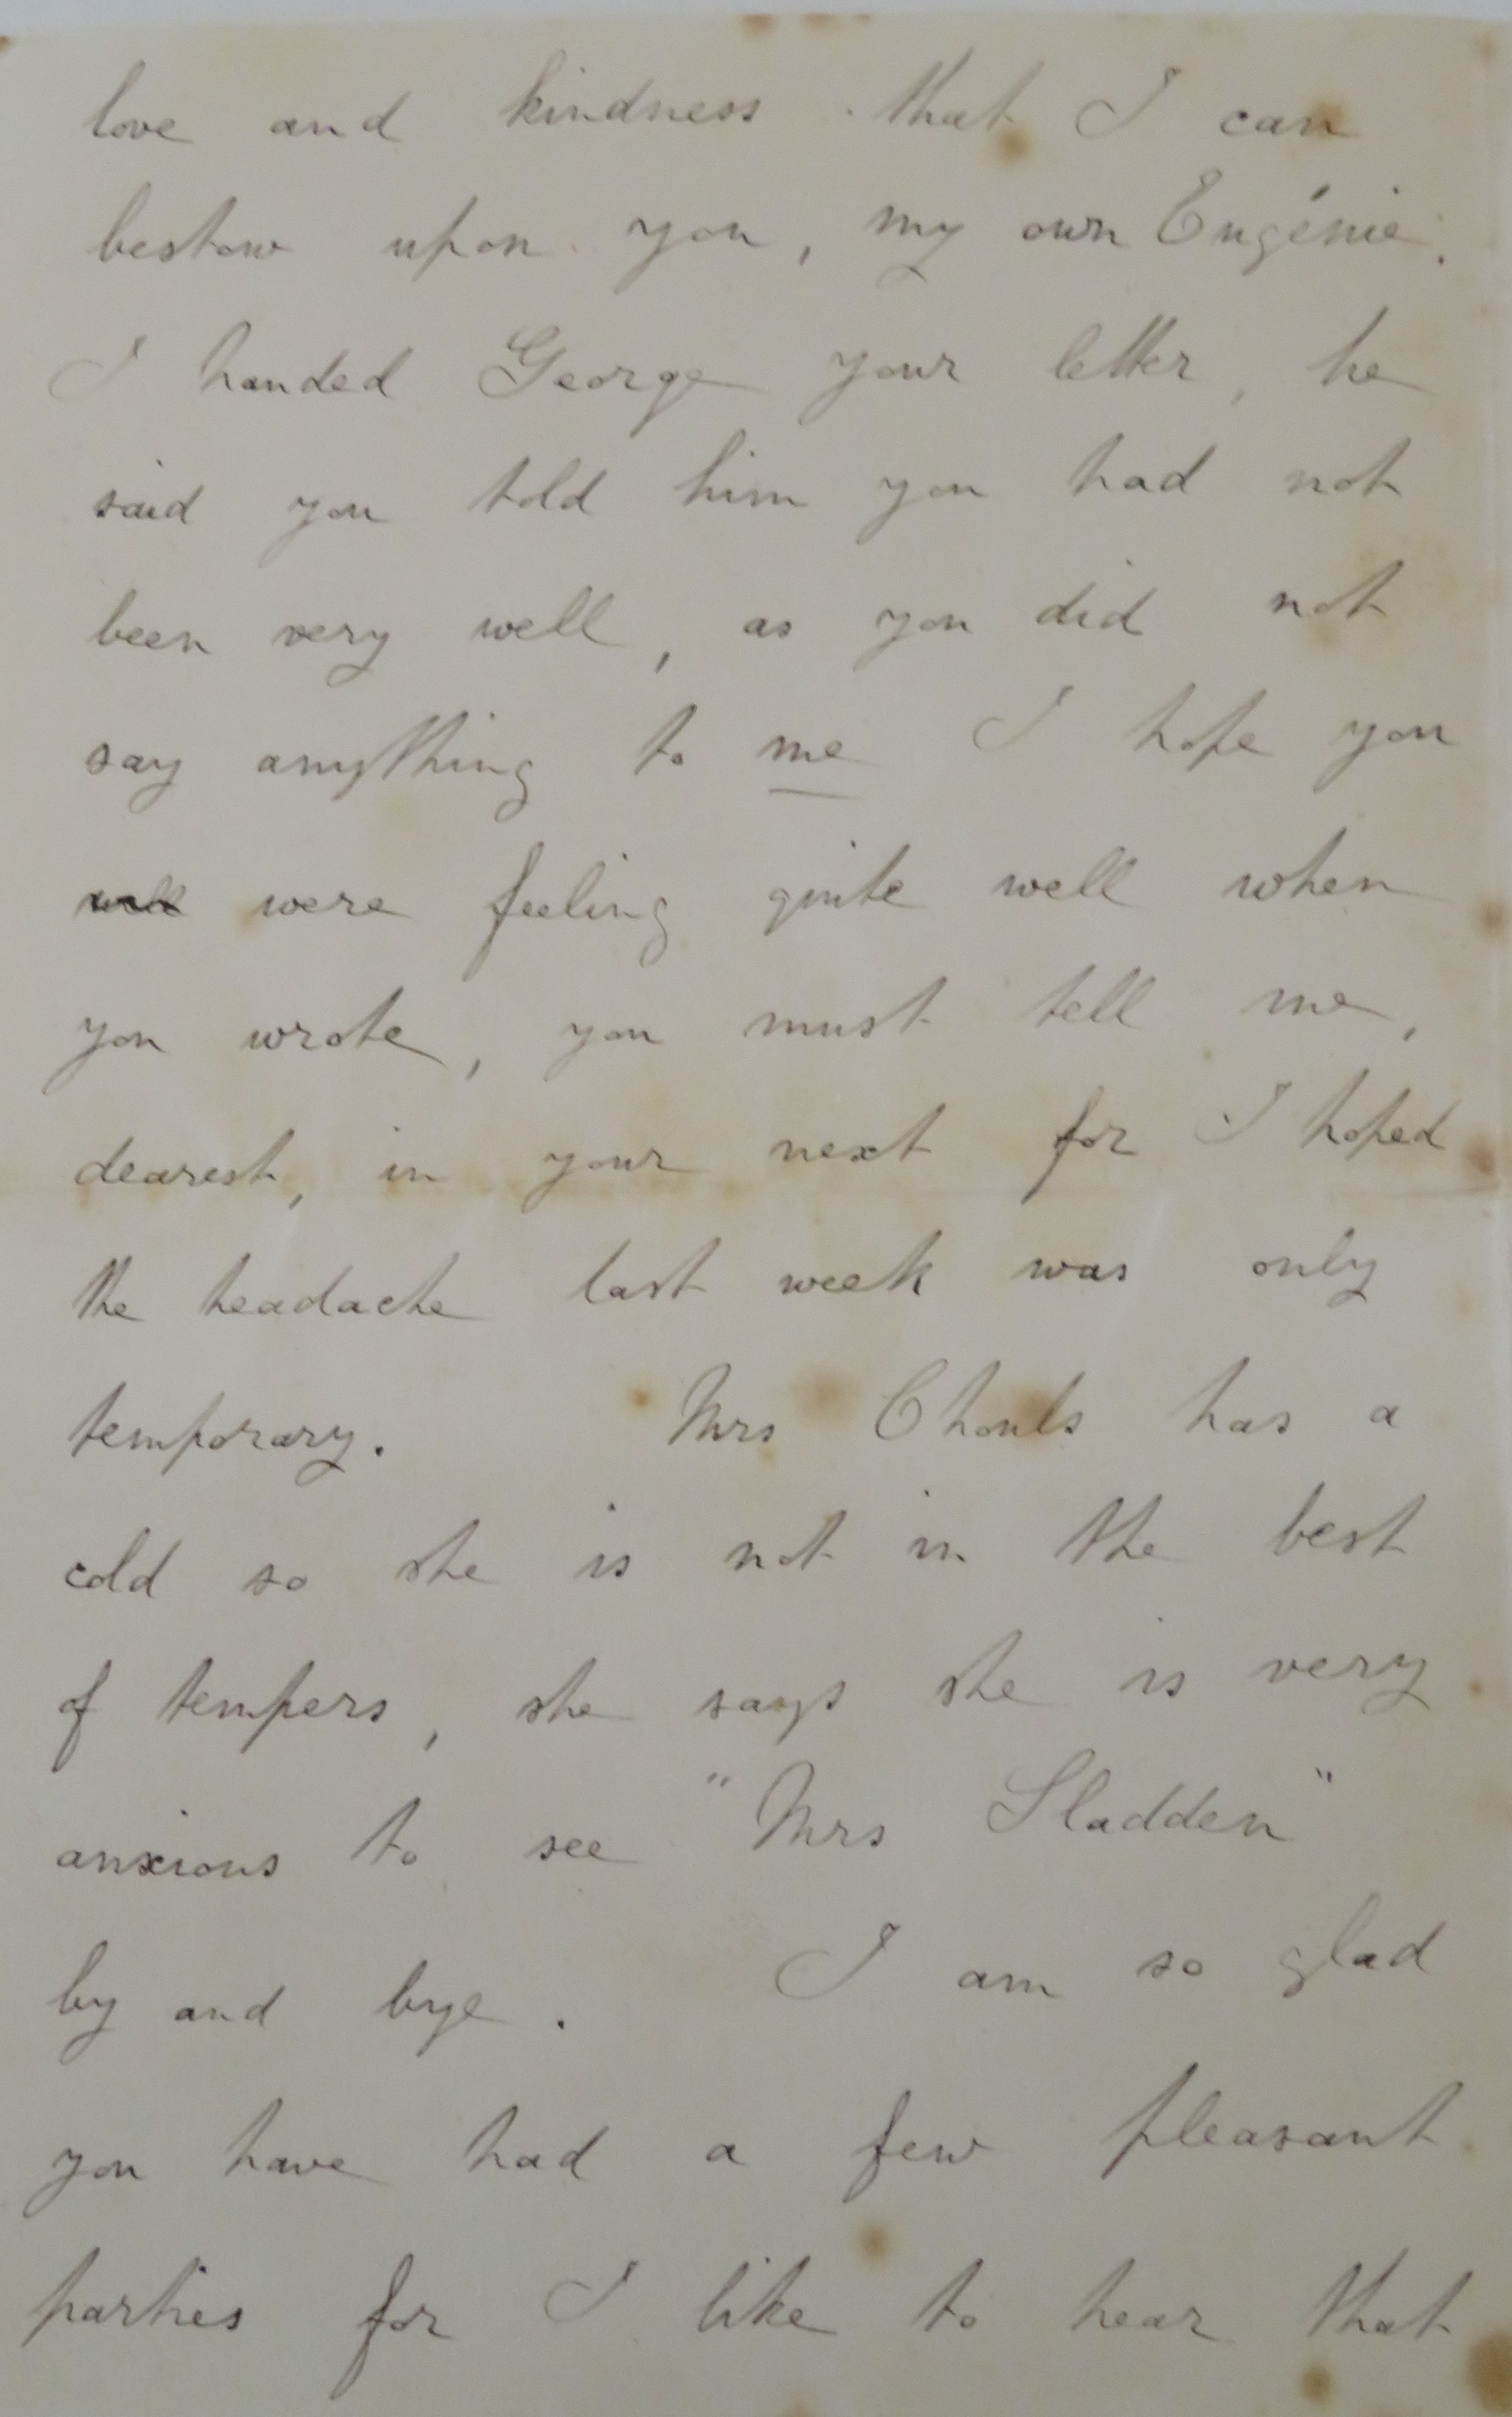 love and kindness that I can
bestow upon you, my own Eugénie.
I handed George your letter, he
said you told him you had not
been very well, as you did not
say anything to me I hope you
well were feeling quite well when
you wrote, you must tell me,
dearest, in your next for I hoped
the headache last week was only
temporary. Mrs Chouls has a
cold so she is not in the best
of tempers, she says she is very
anxious to see "Mrs Sladden"
by and bye. I am so glad
you have had a few pleasant
parties for I like to hear that